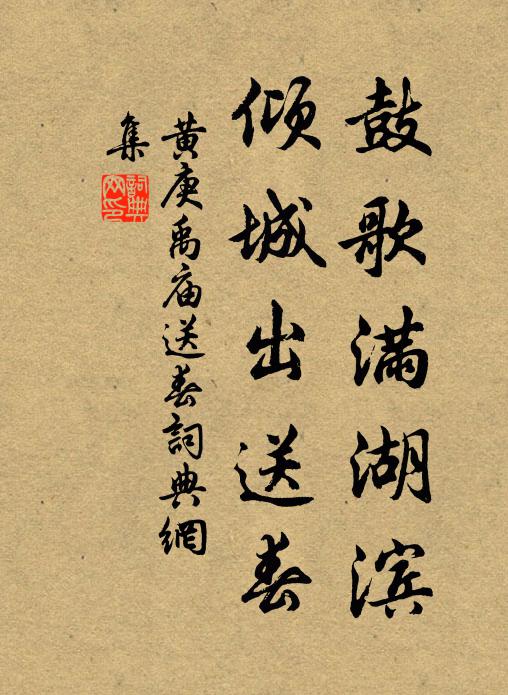 鼓歌满湖滨
倾城出送春
黄庚禹庙送春詞典網
集
詞典
网印